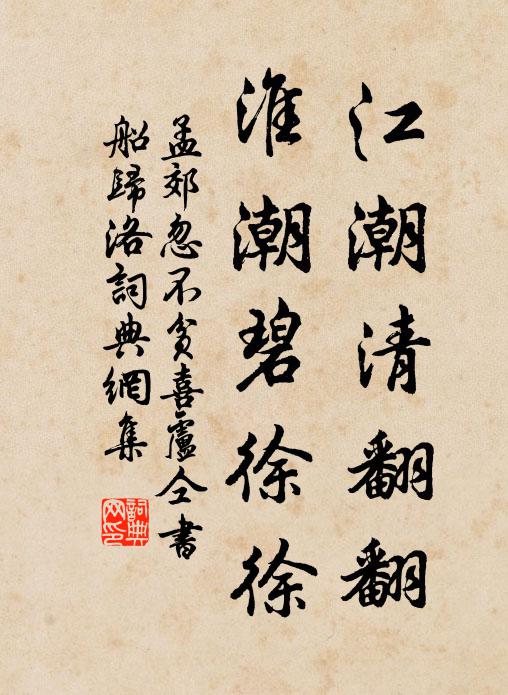 江潮清翻翻
淮潮碧徐徐
孟郊忽不貧喜盧仝書
船歸洛詞典網集
詞典
网印